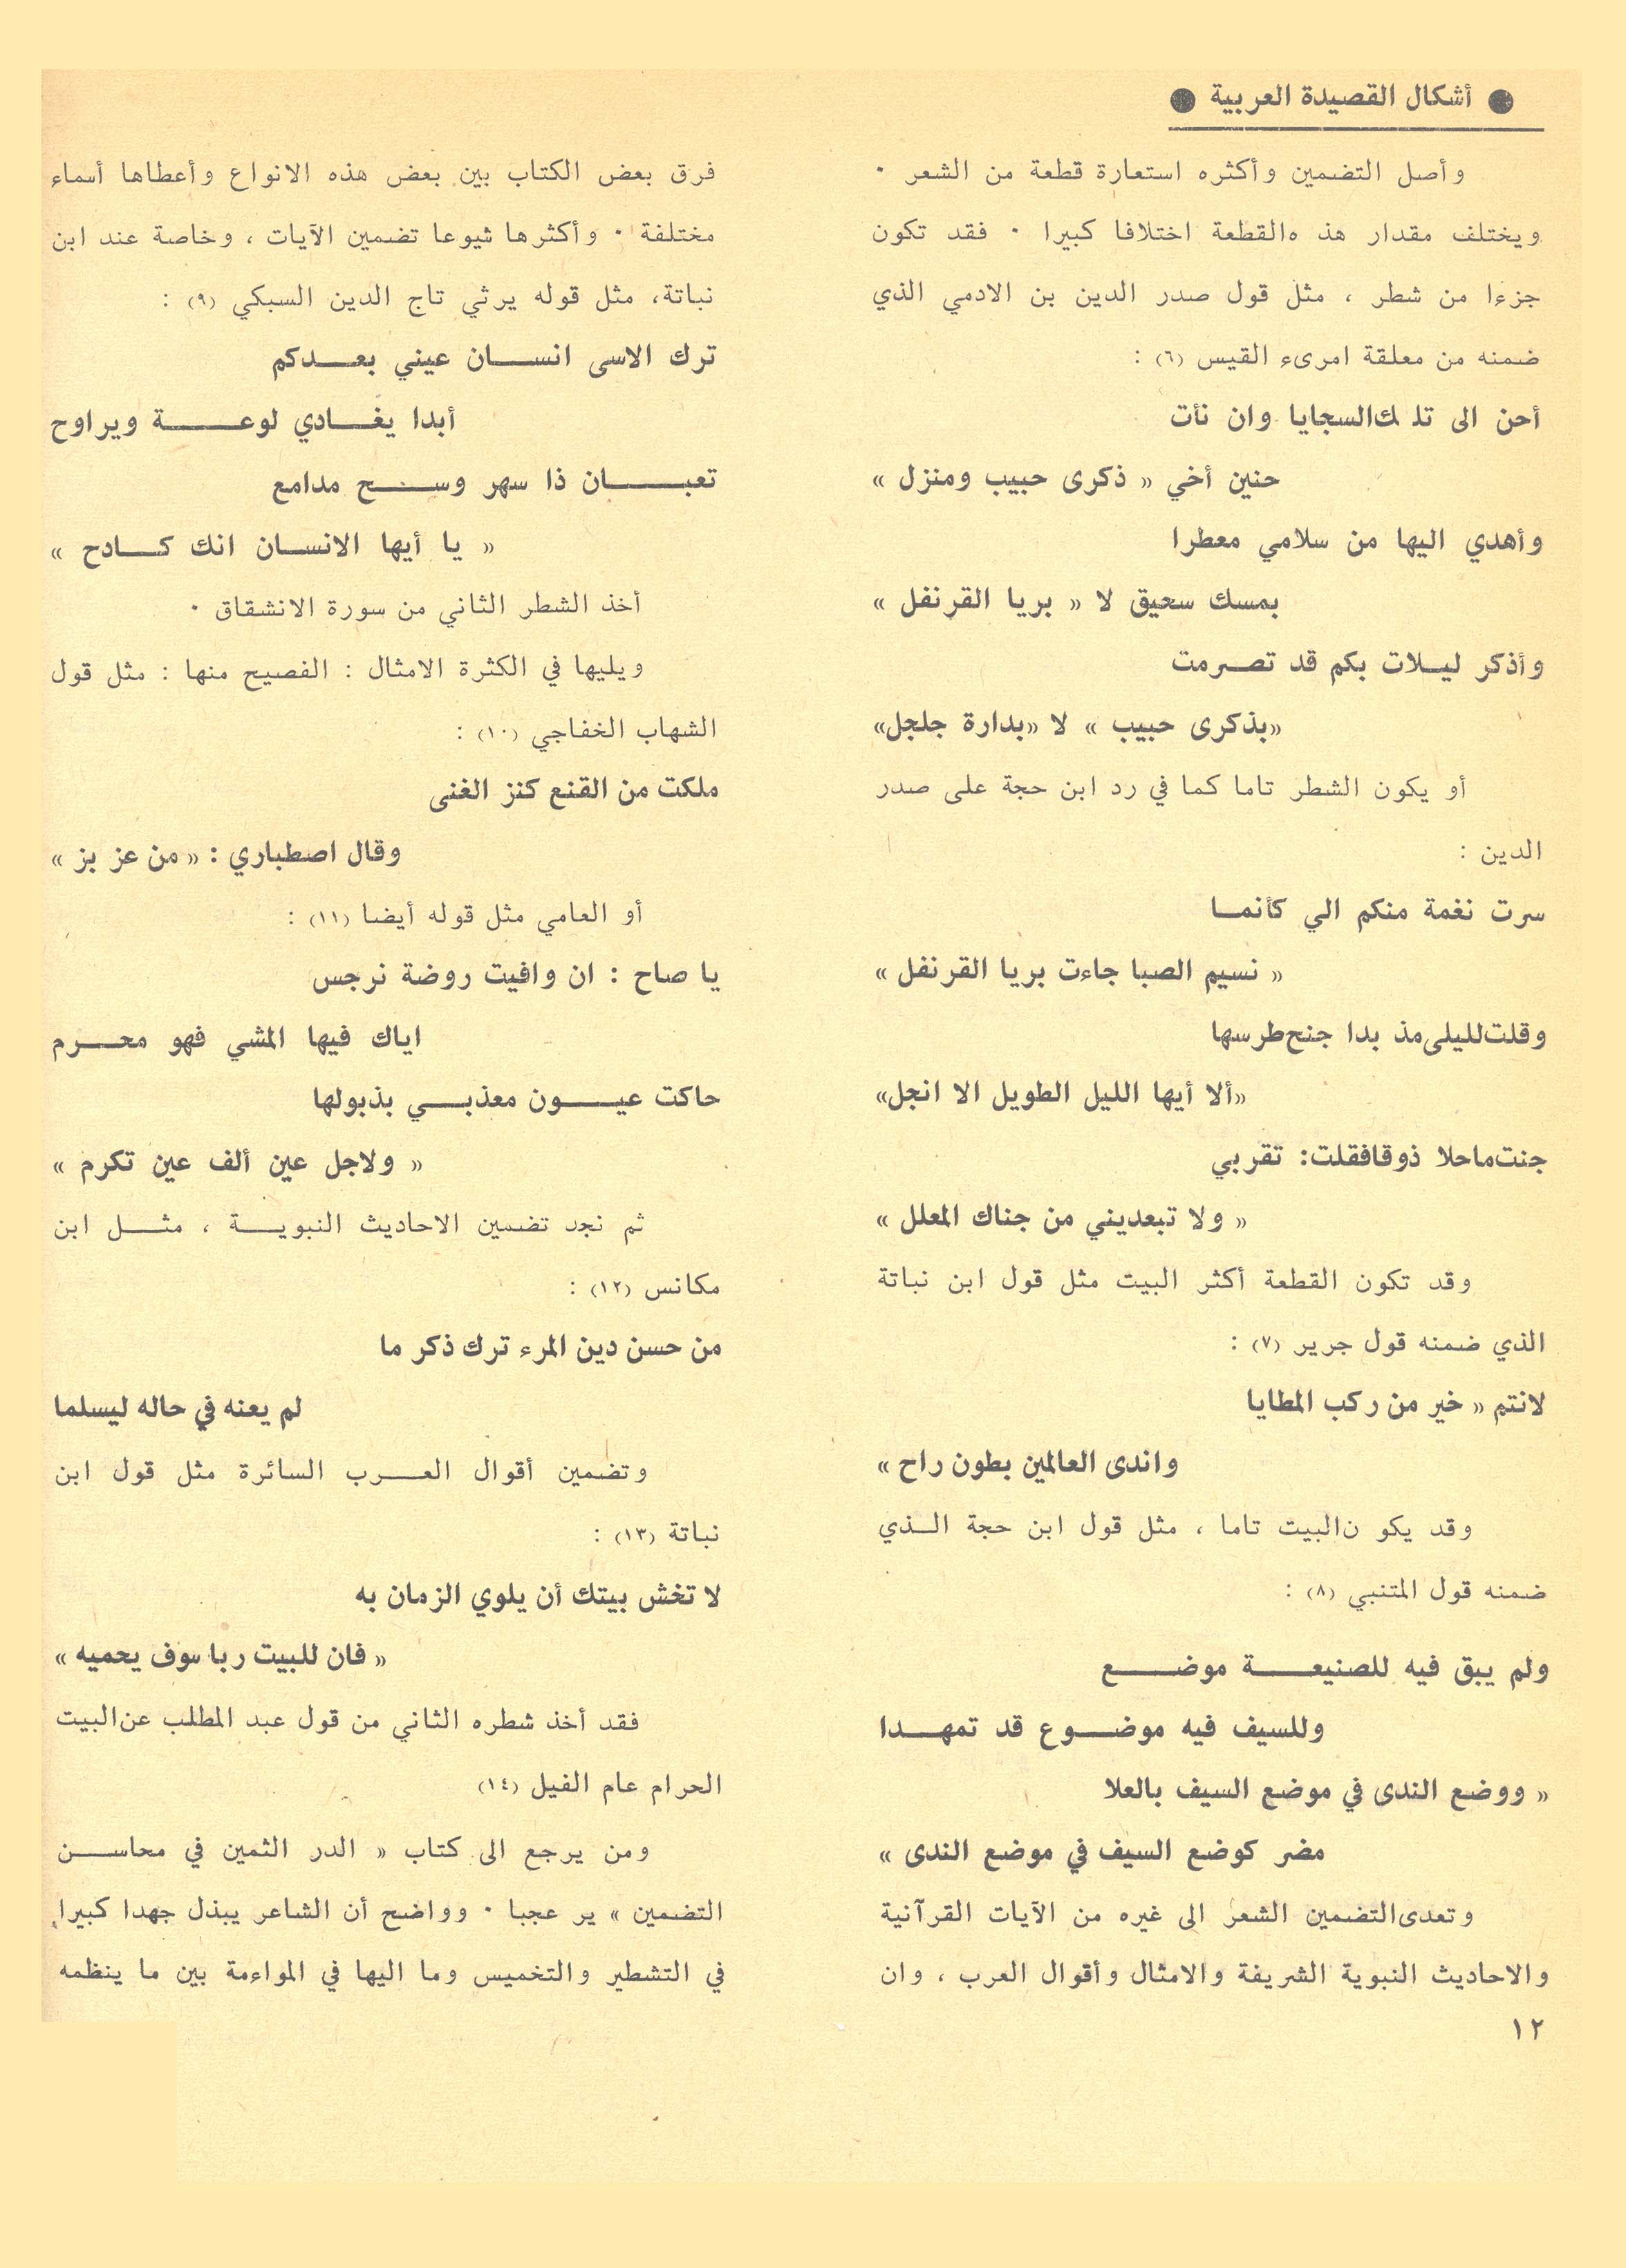 ● أشكال القصيدة العربية ●
وأصل التضمين وأكثره استعارة قطعة من الشعر ٠
ويختلف مقدار هذ ه القطعة اختلافا كبيرا ٠ فقد تكون
جزءا من شطر ، مثل قول صدر الدين بن الادمي الذي
ضمنه من معلقة امرىء القيس (٦) :
أحن الى تلك السجايا وان نأت
حنين أخي « ذكرى حبيب ومنزل »
وأهدي اليها من سلامي معطرا
بمسك سحيق لا « بريا القرنفل »
وأذكر ليلات بكم قد تصرمت
«بذكرى حبيب » لا «بدارة جلجل»
أو يكون الشطر تاما كما في رد ابن حجة على صدر
الدين :
سرت نغمة منكم الي كأنما
« نسيم الصبا جاءت بريا القرنفل »
وقلت لليلى مذ بدا جنح طرسها
«ألا أيها الليل الطويل الا انجل»
جنت ماحلا ذوقا فقلت: تقربي
« ولا تبعديني من جناك المعلل »
وقد تكون القطعة أكثر البيت مثل قول ابن نباتة
الذي ضمنه قول جرير (٧) :
لانتم « خير من ركب المطايا
واندى العالمين بطون راح »
وقد يكو ن البيت تاما ، مثل قول ابن حجة الذي
ضمنه قول المتنبي (٨) :
ولم يبق فيه للصنيعة موضع
وللسيف فيه موضوع قد تمهدا
« ووضع الندى في موضع السيف بالعلا
مضر كوضع السيف في موضع الندى »
وتعدى التضمين الشعر الى غيره من الآيات القرآنية
والاحاديث النبوية الشريفة والامثال وأقوال العرب ، وان
فرق بعض الكتاب بين بعض هذه الانواع وأعطاها أسماء
مختلفة ٠ وأكثرها شيوعا تضمين الآيات ، وخاصة عند ابن
نباتة، مثل قوله يرثي تاج الدين السبكي (٩) :
ترك الاسى انسان عيني بعدكم
أبدا يغادي لوعة ويراوح
تعبان ذا سهر وسح مدامع
« يا أيها الانسان انك كادح »
أخذ الشطر الثاني من سورة الانشقاق ٠
ويليها في الكثرة الامثال : الفصيح منها : مثل قول
الشهاب الخفاجي (١٠) :
ملكت من القنع كنز الغنى
وقال اصطباري : « من عز بز »
أو العامي مثل قوله أيضا (١١) :
يا صاح : ان وافيت روضة نرجس
اياك فيها المشي فهو محرم
حاكت عيون معذبي بذبولها
« ولاجل عين ألف عين تكرم »
ثم نجد تضمين الاحاديث النبوية ، مثل ابن
مكانس (١٢) :
من حسن دين المرء ترك ذكر ما
لم يعنه في حاله ليسلما
وتضمين أقوال العرب السائرة مثل قول ابن
نباتة (١٣) :
لا تخش بيتك أن يلوي الزمان به
« فان للبيت ربا سوف يحميه »
فقد أخذ شطره الثاني من قول عبد المطلب عن البيت
الحرام عام الفيل (١٤)
ومن يرجع الى كتاب « الدر الثمين في محاسن
التضمين » ير عجبا ٠ وواضح أن الشاعر يبذل جهدا كبيرا
في التشطير والتخميس وما اليها في المواءمة بين ما ينظمه
١٢